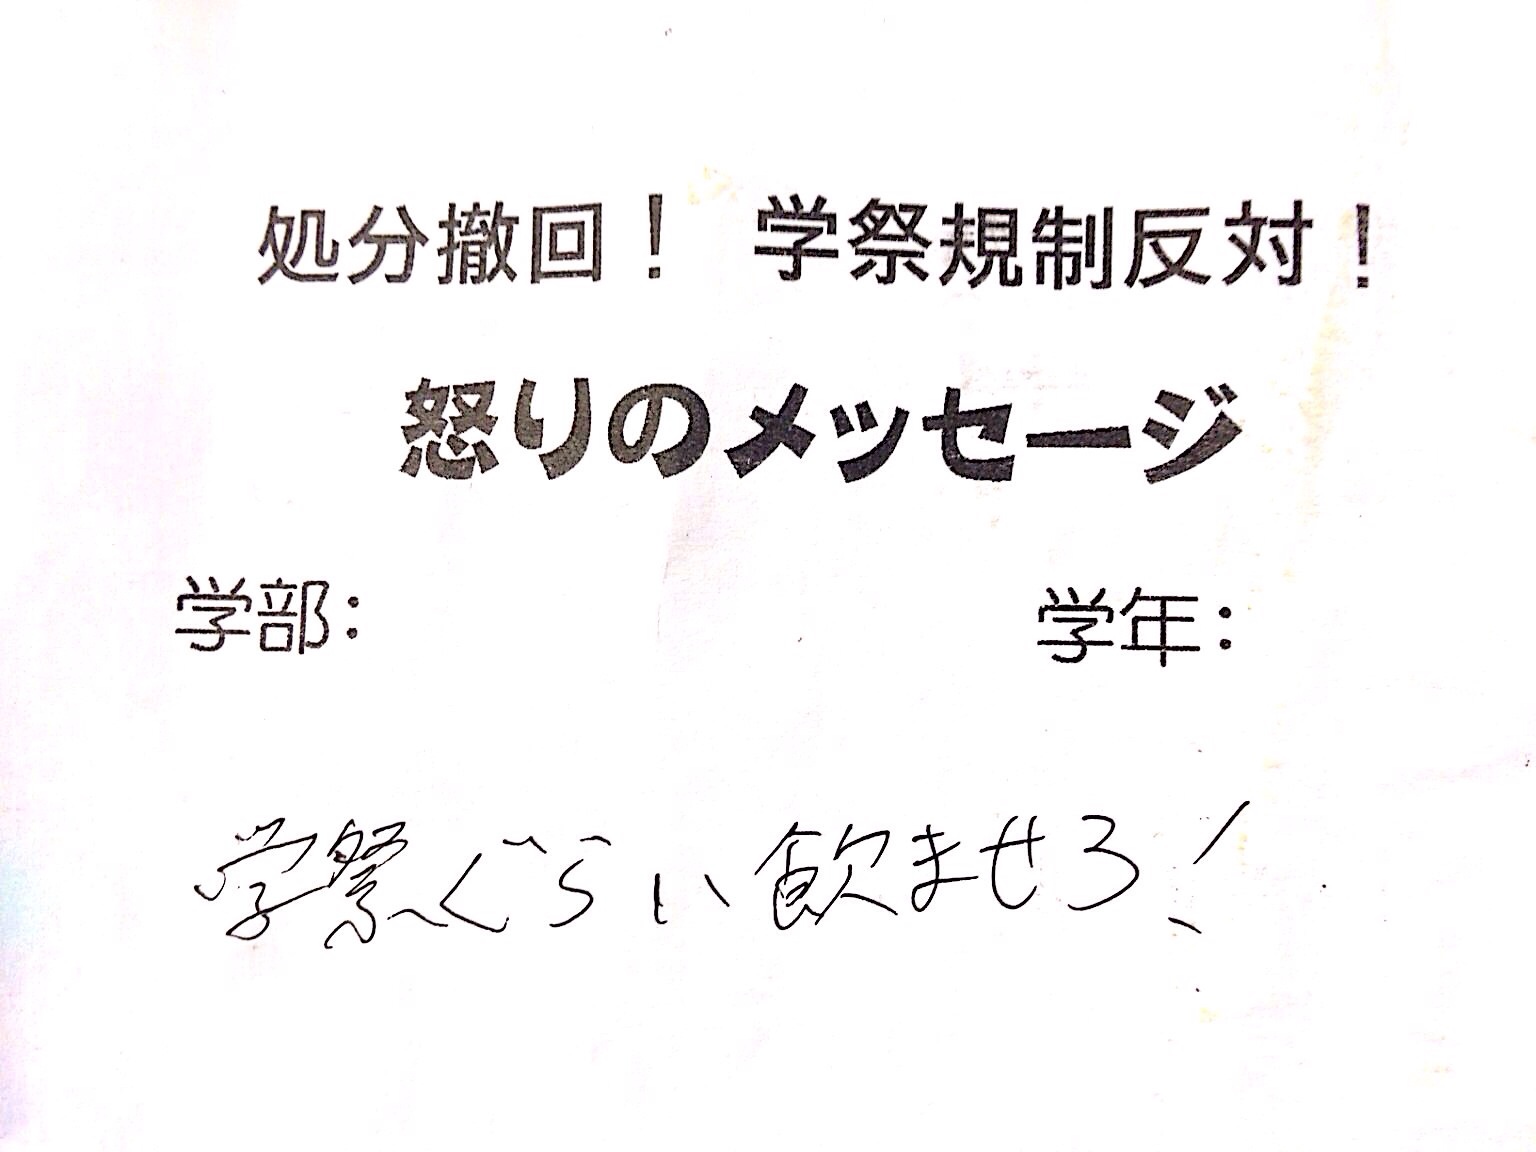 処分撤回! 学祭規制反対!
怒りのメッセージ
学部: 学年:
学祭ぐらい飲ませろ!